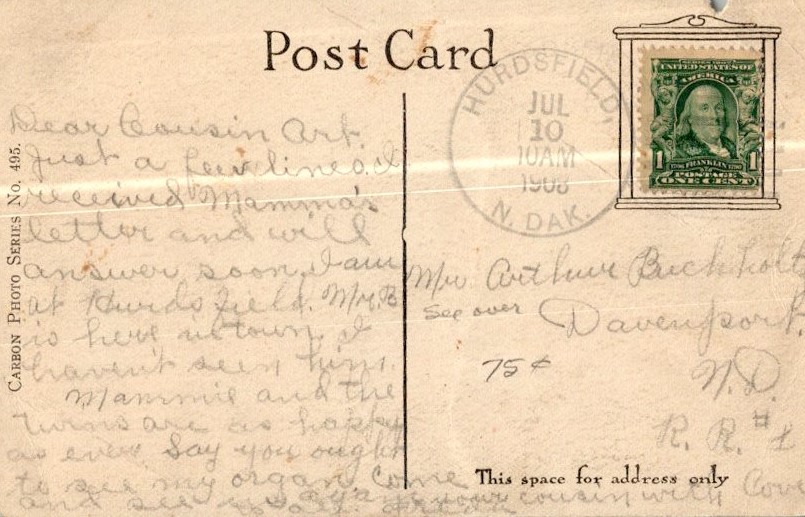 Post Card
HURDSFIELD,
JUL
10
10AM
1908
N. DAK.
SERIES 1902
UNITED STATES OF
AMERICA
1 FRANKLIN 1
POSTAGE
ONE CENT
CARBON PHOTO SERIES No. 495.
Dear Cousin Art.
Just a few lines. I
received Mamma's
letter and will
answer soon. I am
at Hurdsfield. Mr. B
is here in town. I
haven't seen him.
Mammie and the
twins are as happy
as ever. Say you ought
to see my organ. Come
and see us
your cousin with Love
Mr. Arthur Buchholt
See over
Davenport.
75¢
N.D.
R. R. #1
This space for address only